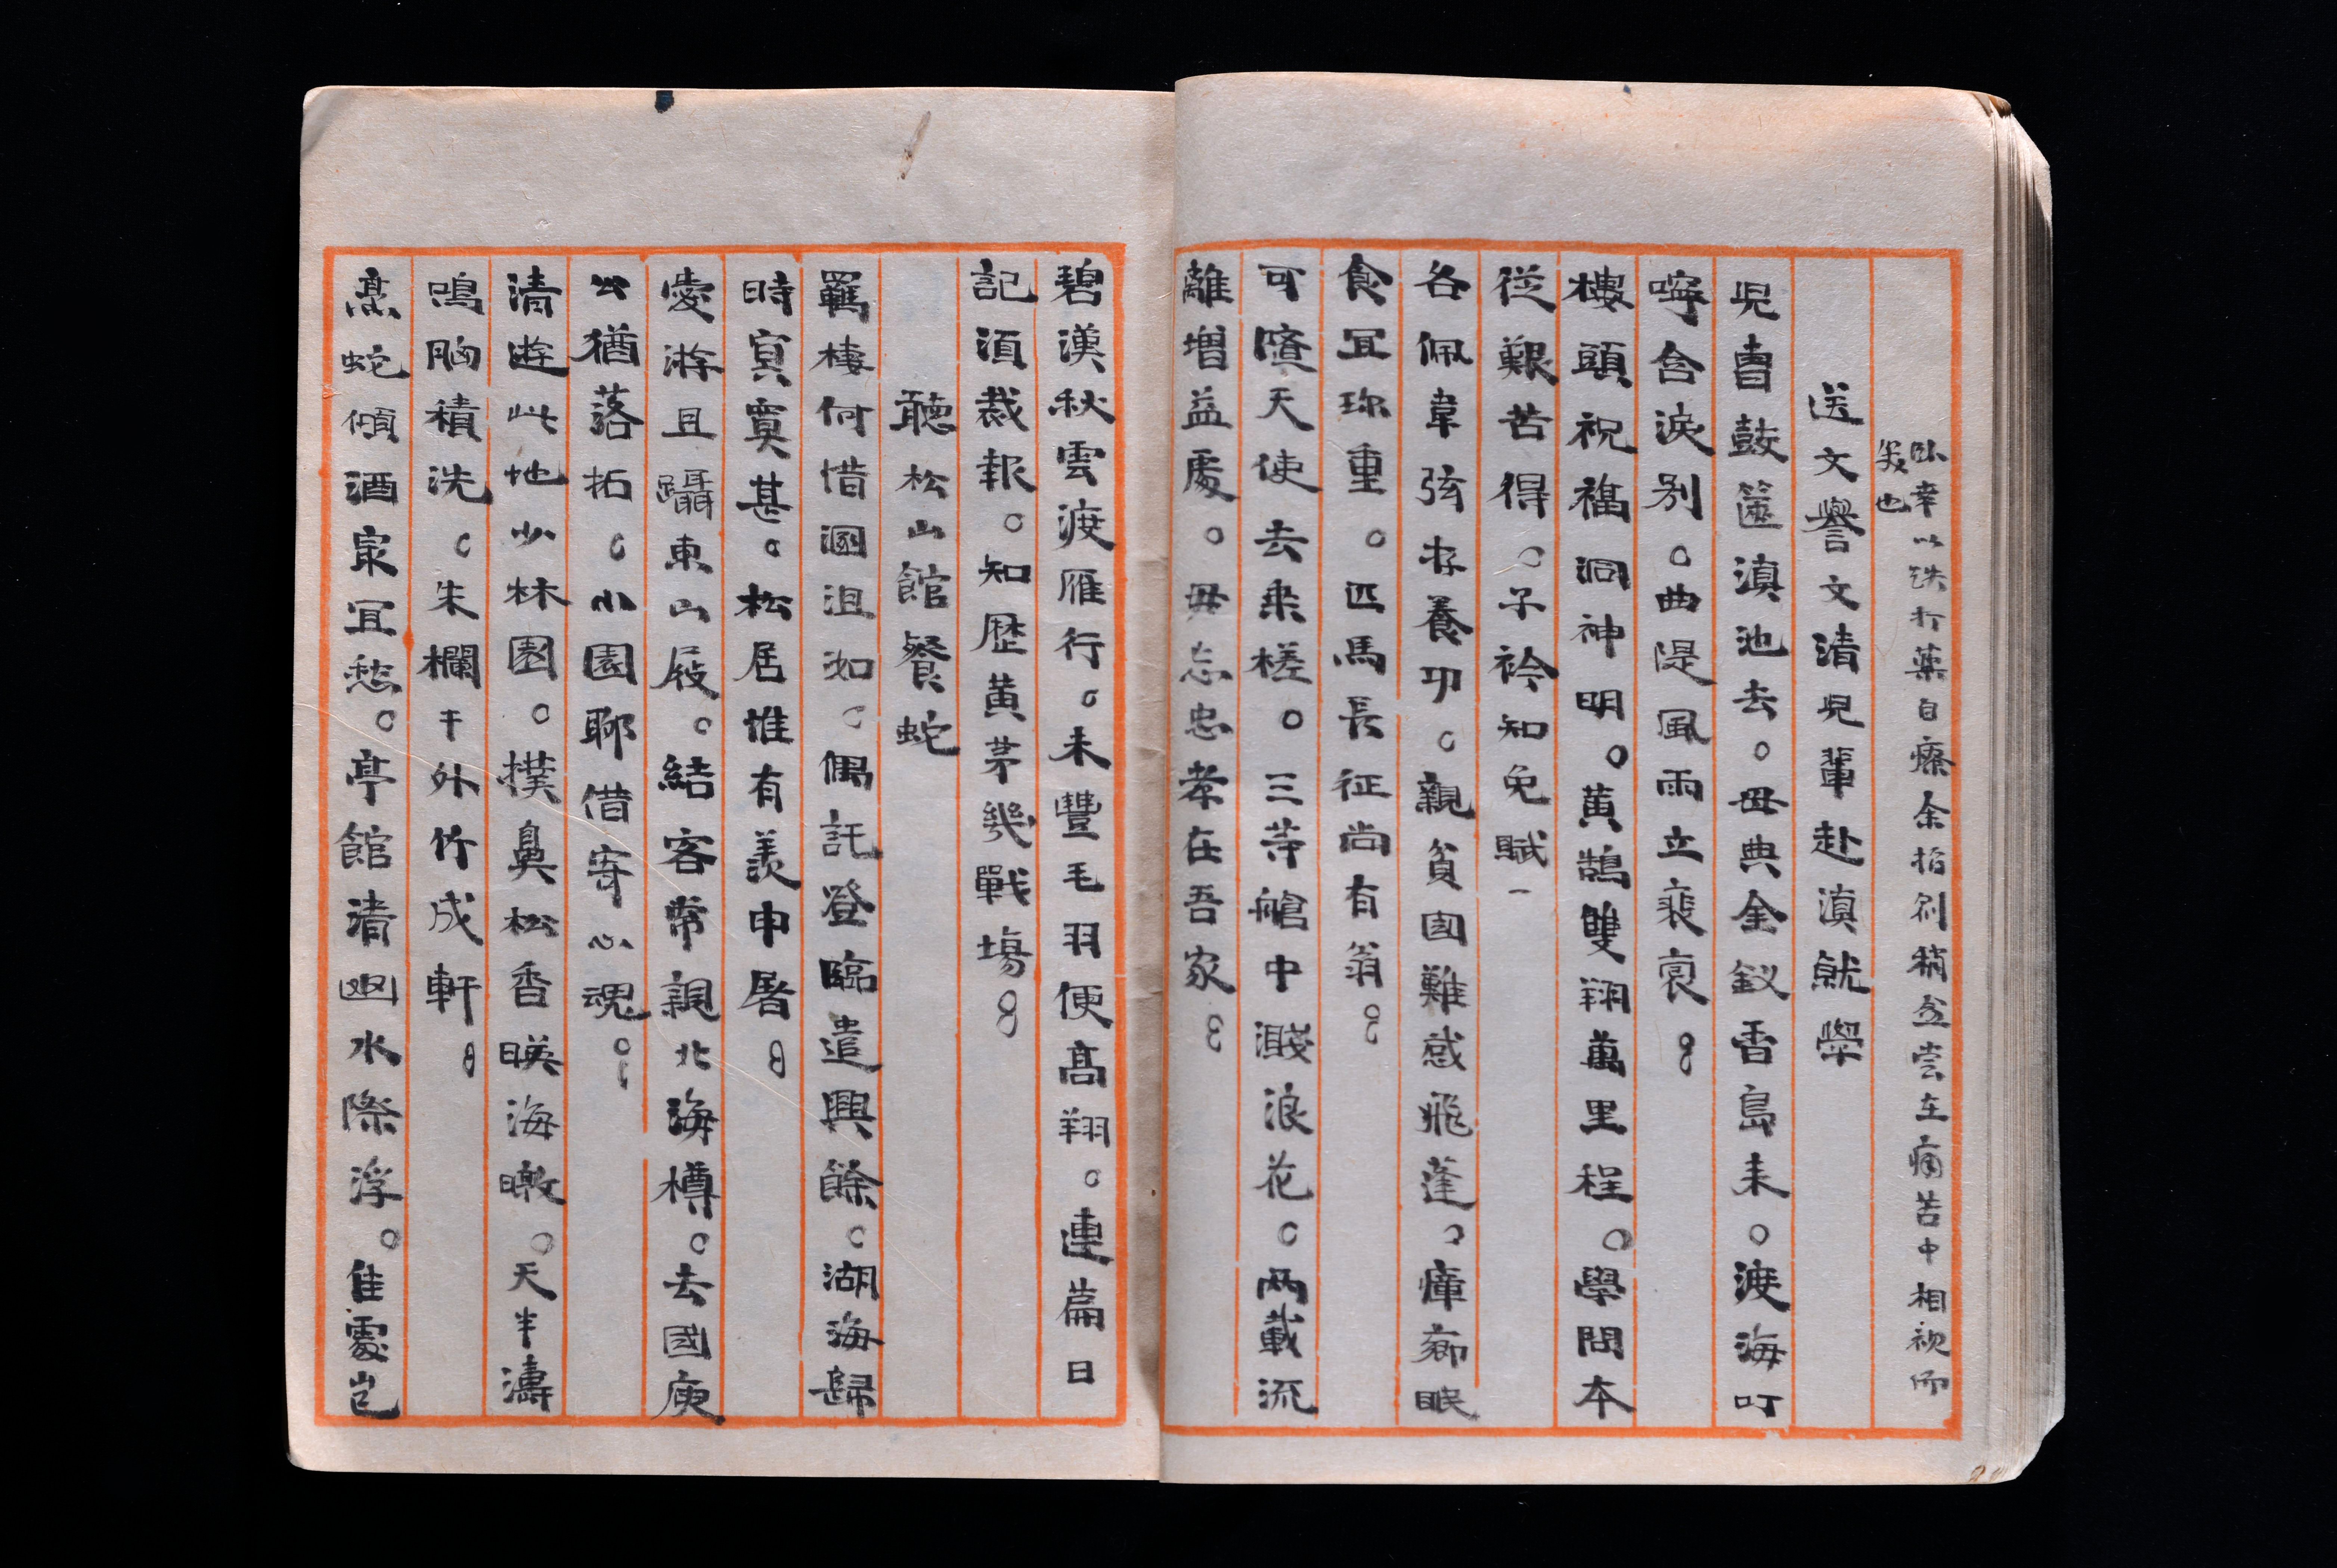 臥幸以铁打藥自療余指創稍瘥嘗在痛苦中相视而
笑也
送文譽文清児輩赴滇就學
児曹鼓篋滇池去。母典金釵香島来。渡海叮
嚀含淚别。曲隄風雨立裴裹。
樓頭祝福洞神明。黄鵠雙翔萬里程。學問本
從艱苦得。子衿知免賦一
各佩韋弦存養功。親貧國難感飛蓬。瘴鄉眠
食宜珎重。匹馬長征尚有翁。
可隮天使去乗槎。三等艙中濺浪花。兩載流
離增益處。毋忘忠孝在吾家。
碧漢秋雲渡雁行。未豐毛羽便高翔。連篇日
記須裁報。知歷黄茅幾戰場。
聽松山館餐蛇
羈棲何惜溷沮洳。偶託登臨遣興餘。湖海歸
時寘寞甚。松居惟有羨申屠。
愛游且躡東山屐。結客常親北海樽。去國庾
公猶落拓。小園聊借寄心魂。
清遊此地少林園。撲鼻松香暎海暾。天半濤
鳴胸積洗。朱欄干外竹成軒。
烹蛇傾酒㝡宜愁。亭館清幽水際浮。隹處豈